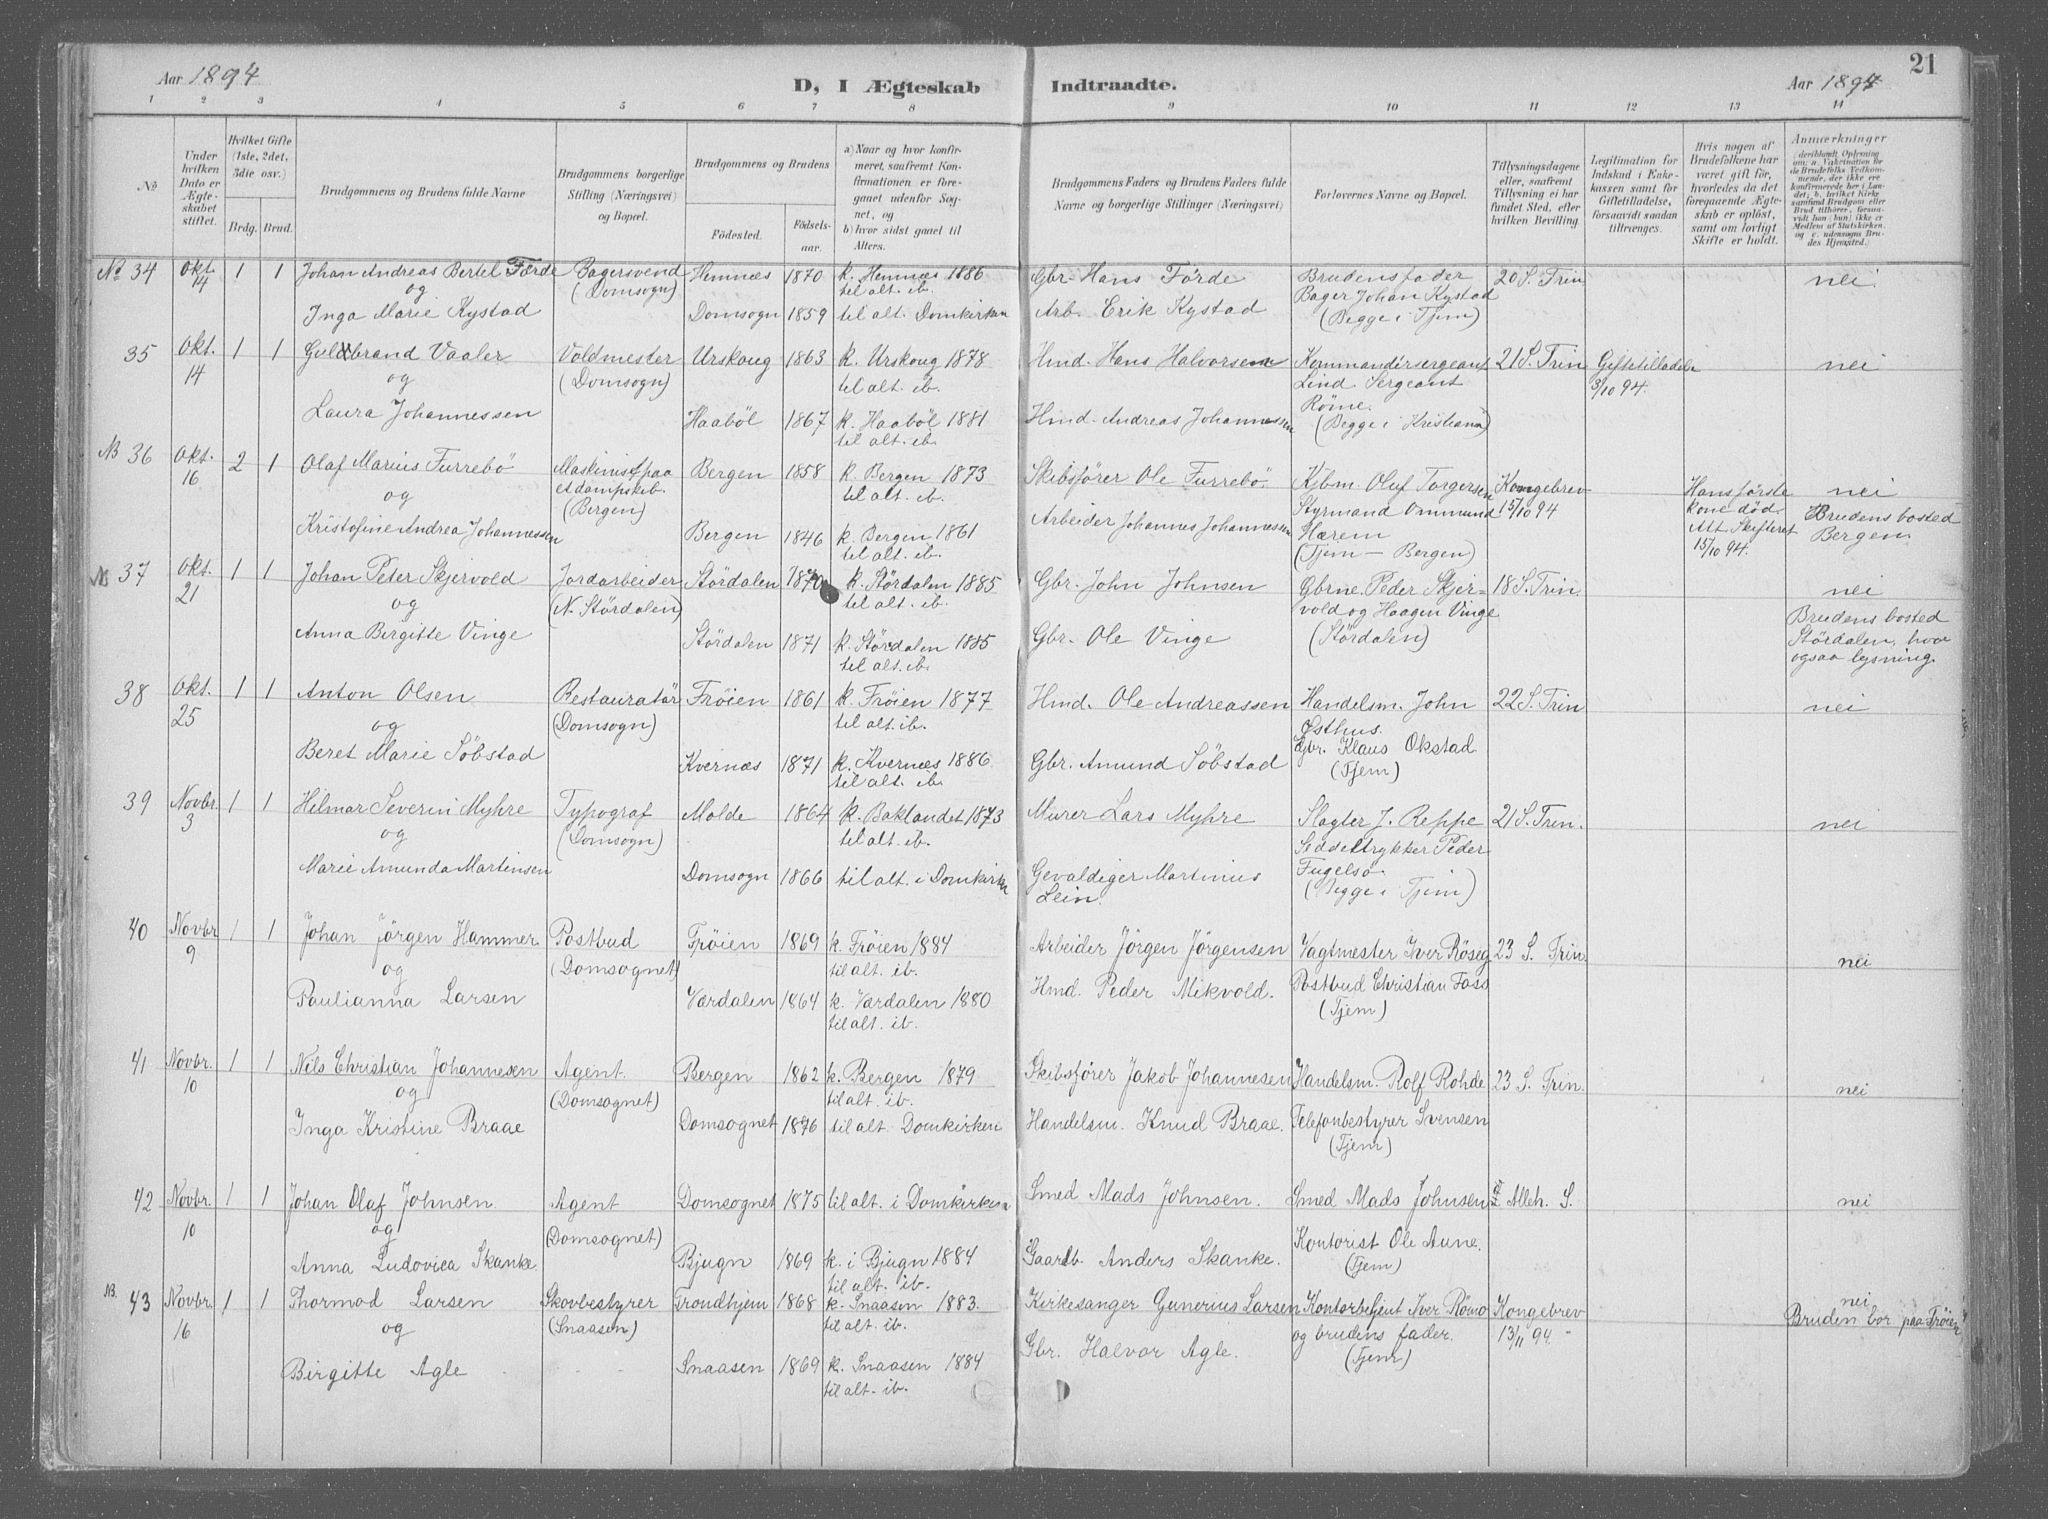 Aar 1894
D, I Ægteskab Indtraadte.
Aar 1894
21
1 2 3 4 5 6 7 8 9 10 11 12 13 14
No
Under hvilken Dato er Ægteskabet stiftet.
Hvilket Gifte (1ste, 2det, 3die osv.)
Brdg. Brud.
Brudgommens og Brudens fulde Navne
Brudgommens borgerlige Stilling (Næringsvei) og Bopæl.
Brudgommens og Brudens
Fødested. Fødselsaar.
a) Naar og hvor konfirmeret, saafremt Konfirmationen er foregaaet udenfor Sognet, og
b) hvor sidst gaaet til Alters.
Brudgommens Faders og Brudens Faders fulde Navne og borgerlige Stillinger (Næringsvei)
Forlovernes Navne og Bopæl.
Tillysningsdagene eller, saafremt Tillysning ei har fundet Sted, efter hvilken Bevilling.
Legitimation for Indskud i Enkekassen samt for Giftetilladelse, forsaavidt saadan tiltrænges.
Hvis nogen af Brudefolkene har været gift før, hvorledes da det foregaaende Ægteskab er opløst, samt om lovligt Skifte er holdt.
Anmærkninger
(deriblandt Oplysning om: a. Vakcination for de Brudefolks Vedkommende, der ikke ere konfirmerede her i Landet; b. hvilket Kirkesamfund Brudgom eller Brud tilhører, forsaavidt han (hun) ikke er Medlem af Statskirken, og c. udensogns Brudes Hjemsted.
No 34 Okt. 14 1 1 Johan Andreas Bertel Færde Bagersvend Hemnæs 1870 k. Hemnæs 1886 Gbr. Hans Förde Brudens fader 20 S. Trin nei
og (Domsogn) til alt. ib. Bager Johan Kystad
Inga Marie Kystad Domsogn 1859 til alt. Domkirken Arb. Erik Kystad (Begge i Tjem)
35 Okt. 14 1 1 Guldbrand Vaaler Voldmester Urskoug 1863 k. Urskoug 1878 Hmd. Hans Halvorsen Kommandörsergeant 21 S. Trin Giftetilladelse nei
og (Domsogn) til alt. ib. Lind Sergeant 3/10 94.
Laura Johannessen Haaböl 1867 k. Haaböl 1881 Hmd. Andreas Johannessen Röme.
til alt. ib. (Begge i Kristiania)
NB 36 Okt. 16 2 1 Olaf Marius Furrebö Maskinist paa Bergen 1858 k. Bergen 1873 Skibsförer Ole Furrebö Kjbm. Oluf Torgersen Kongebrev Hans förste nei
og et dampskib. til alt. ib. Styrmand Ommund 15/10 94 kone död. Brudens bosted
(Bergen) Hærem Alt Skifteret Bergen.
Kristofine Andrea Johannessen Bergen 1846 k. Bergen 1861 Arbeider Johannes Johannessen (Tjem — Bergen) 15/10 94.
til alt. ib.
NB 37 Okt. 21 1 1 Johan Peter Skjervold Jordarbeider Stördalen 1870 k. Stördalen 1885 Gbr. John Johnsen Gbrne. Peder Skjer- 18 S. Trin nei
og (N. Stördalen) til alt. ib. vold og Haagen Vinge Brudens bosted
Anna Birgitte Vinge Stördalen 1871 k. Stördalen 1885 Gbr. Ole Vinge (Stördalen) Stördalen, hvor
til alt. ib. ogsaa lysning.
38 Okt. 25 1 1 Anton Olsen Restauratör Fröien 1861 k. Fröien 1877 Hmd. Ole Andreassen Handelsm. John 22 S. Trin nei
og (Domsogn) til alt. ib. Østhus.
Beret Marie Söbstad Kvernæs 1871 k. Kvernæs 1886 Gbr. Amund Söbstad Gbr. Klaus Okstad
til alt. ib. (Tjem)
39 Novbr. 3 1 1 Hilmar Severin Myhre Typograf Molde 1864 k. Baklandet 1873 Murer Lars Myhre Slagter J. Reppe 21 S. Trin. nei
og (Domsogn) til alt. ib. Seddeltrykker Peder
Marie Amunda Martinsen Domsogn 1866 til alt. i Domkirken Gevaldiger Martinius Fugelsö.
Lein. (Begge i Tjem)
40 Novbr 9 1 1 Johan Jörgen Hammer Postbud Fröien 1869 k. Fröien 1884 Arbeider Jörgen Jörgensen Vagtmester Iver Röseg 23 S. Trin. nei
og (Domsognet) til alt. ib.
Paulianna Larsen Værdalen 1864 k. Værdalen 1880 Hmd. Peder Mikvold. Postbud Christian Foss
til alt. ib. (Tjem)
41 Novbr. 10 1 1 Nils Christian Johannesen Agent. Bergen 1862 k. Bergen 1879 Skibsförer Jakob Johannesen Handelsm. Rolf Rohde 23 S. Trin. nei
og (Domsognet) til alt. ib.
Inga Kristine Braae Domsognet 1876 til alt. Domkirken Handelsm. Knud Braae. Telefonbestyrer Svensen
(Tjem)
42 Novbr. 10 1 1 Johan Olaf Johnsen Agent Domsognet 1875 til alt. i Domkirken Smed Mads Johnsen. Smed Mads Johnsen Alleh. S. nei
og (Domsognet) Kontorist Ole Aune.
Anna Ludovica Skanke Bjugn 1869 k. i Bjugn 1884 Gaardb. Anders Skanke. (Tjem)
til alt. ib.
NB. 43 Novbr. 16 1 1 Thormod Larsen Skovbestyrer Trondhjem 1868 k. Snaasen 1883. Kirkesanger Gunerius Larsen Kontorbetjent Iver Römo Kongebrev nei
og (Snaasen) til alt. ib. og brudens fader. 13/11 94. Bruden bor paa Fröien
Birgitte Agle Snaasen 1869 k. Snaasen 1884 Gbr. Halvor Agle. (Tjem)
til alt. ib.